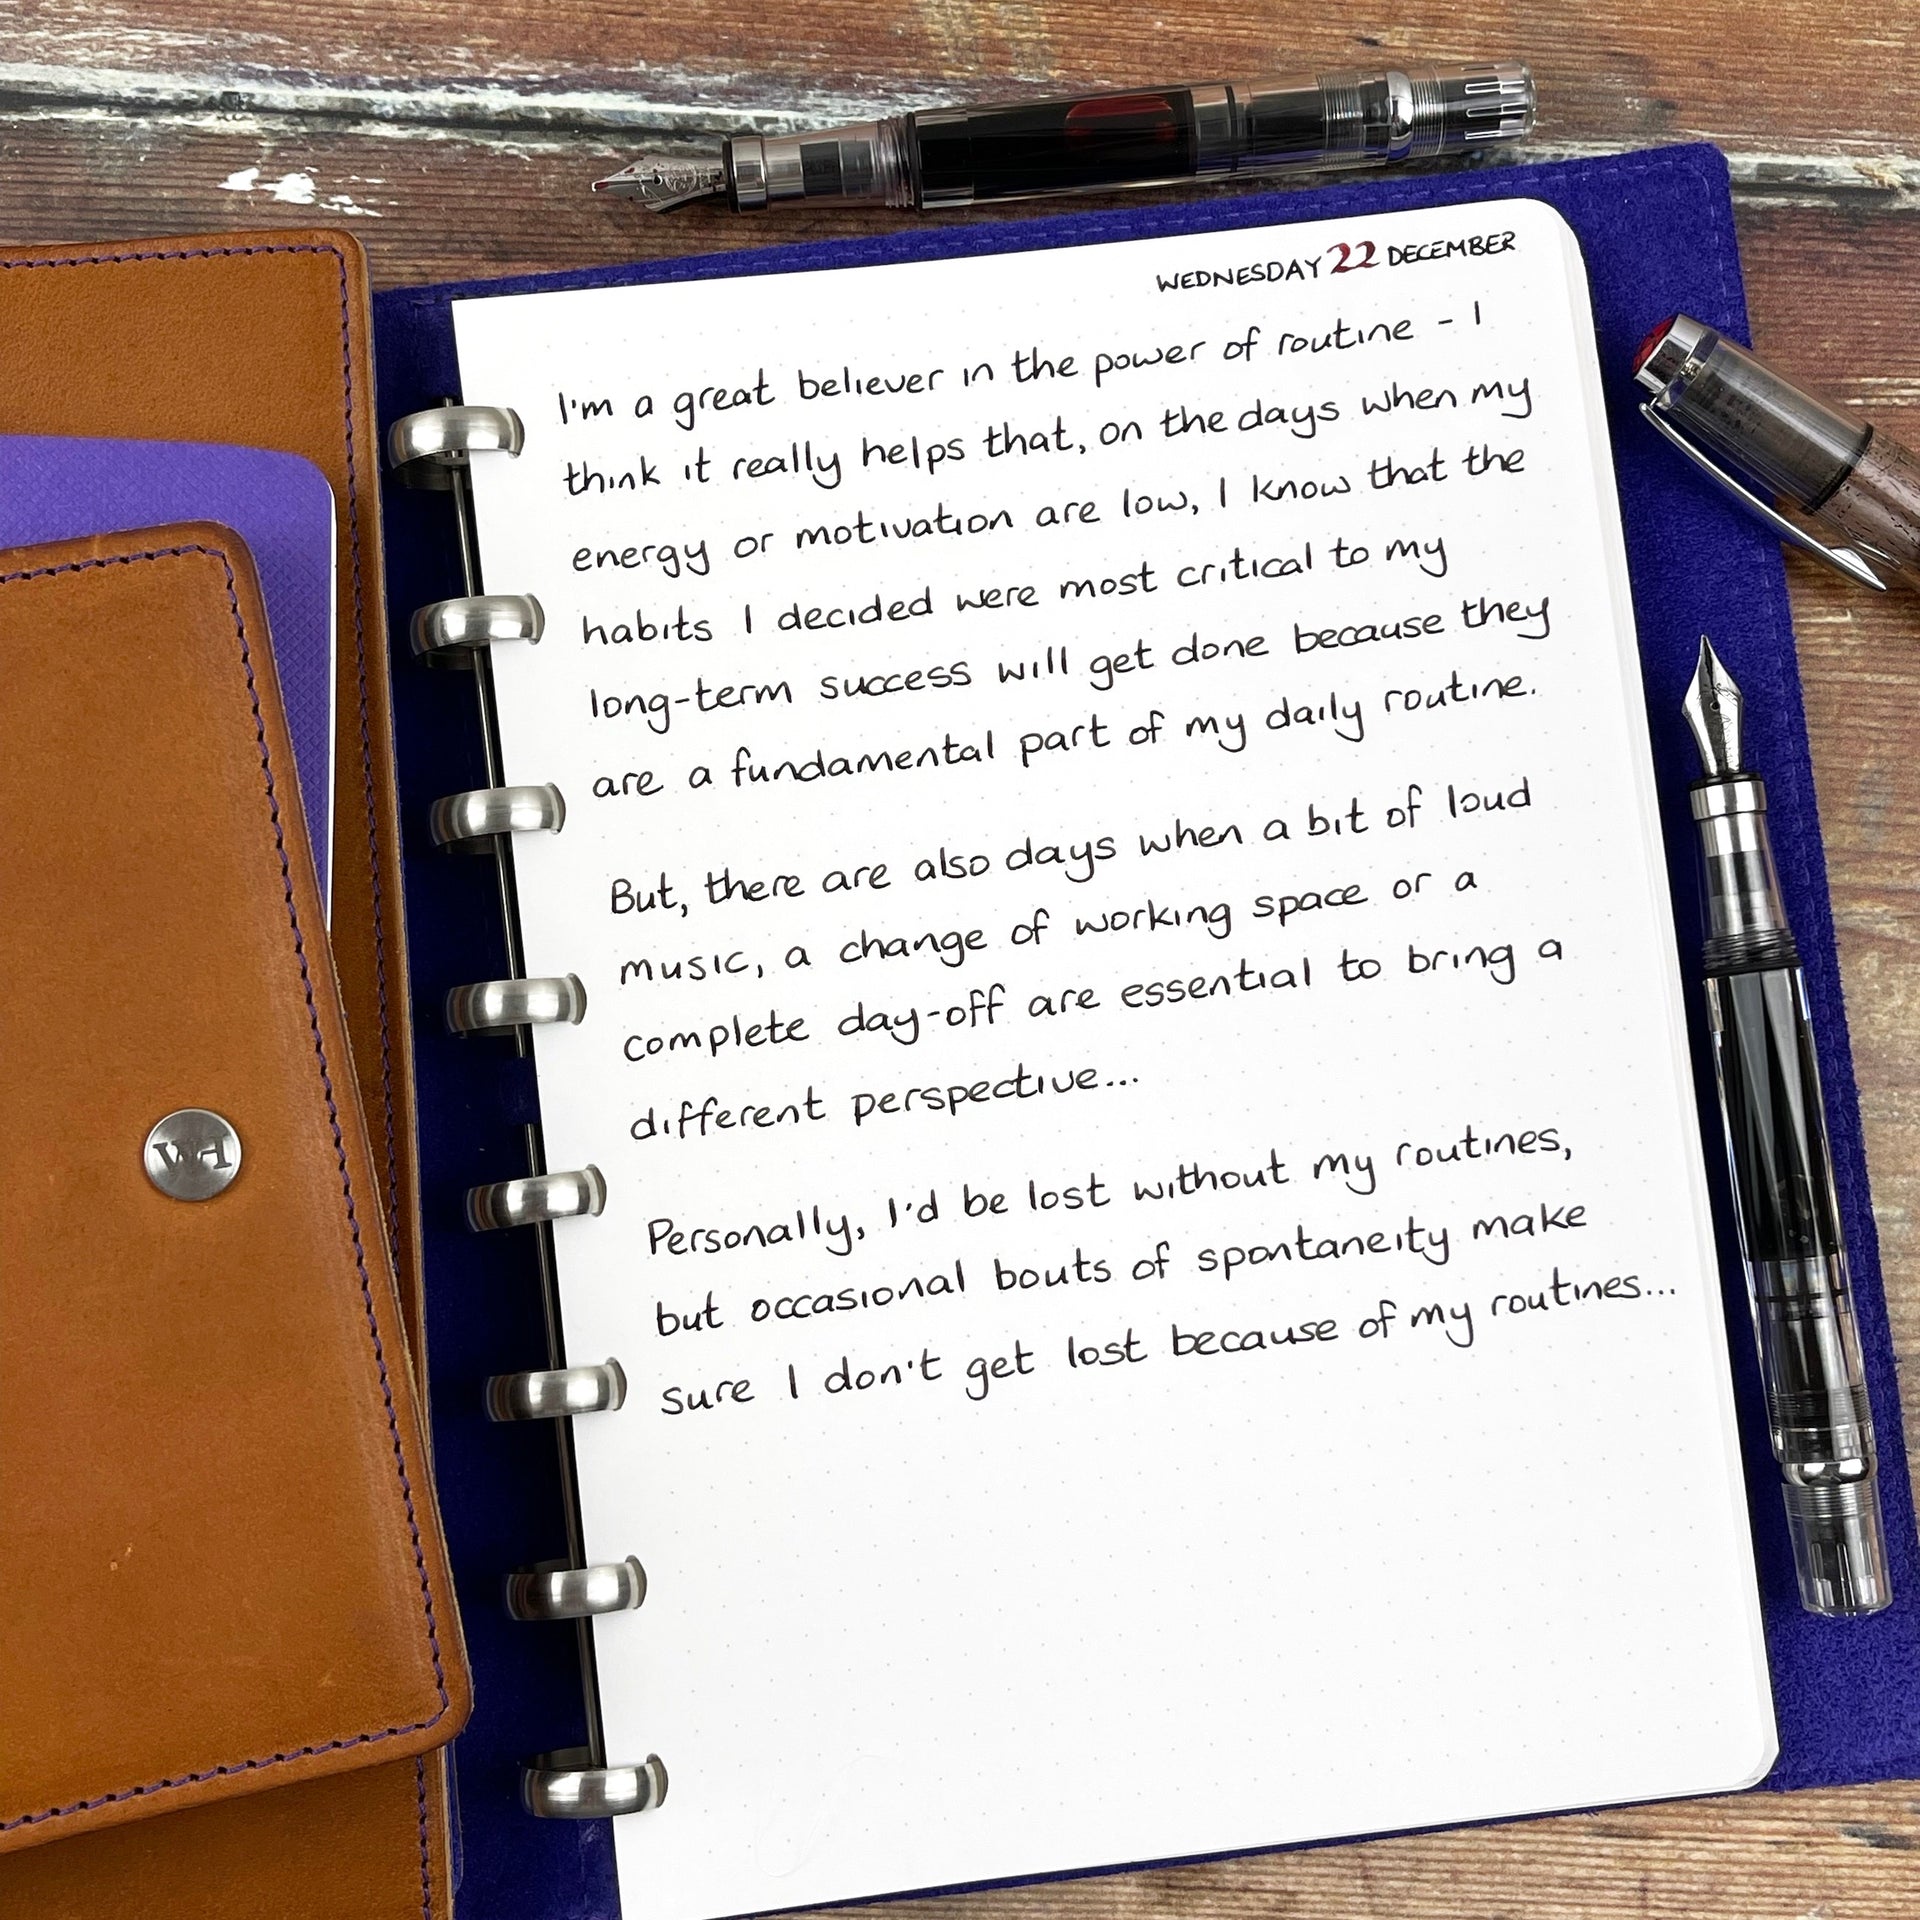 WEDNESDAY 22 DECEMBER
I'm a great believer in the power of routine - I
think it really helps that, on the days when my
energy or motivation are low, I know that the
habits I decided were most critical to my
long-term success will get done because they
are a fundamental part of my daily routine.
But, there are also days when a bit of loud
music, a change of working space or a
complete day-off are essential to bring a
different perspective...
Personally, I'd be lost without my routines,
but occasional bouts of spontaneity make
sure I don't get lost because of my routines...
WH